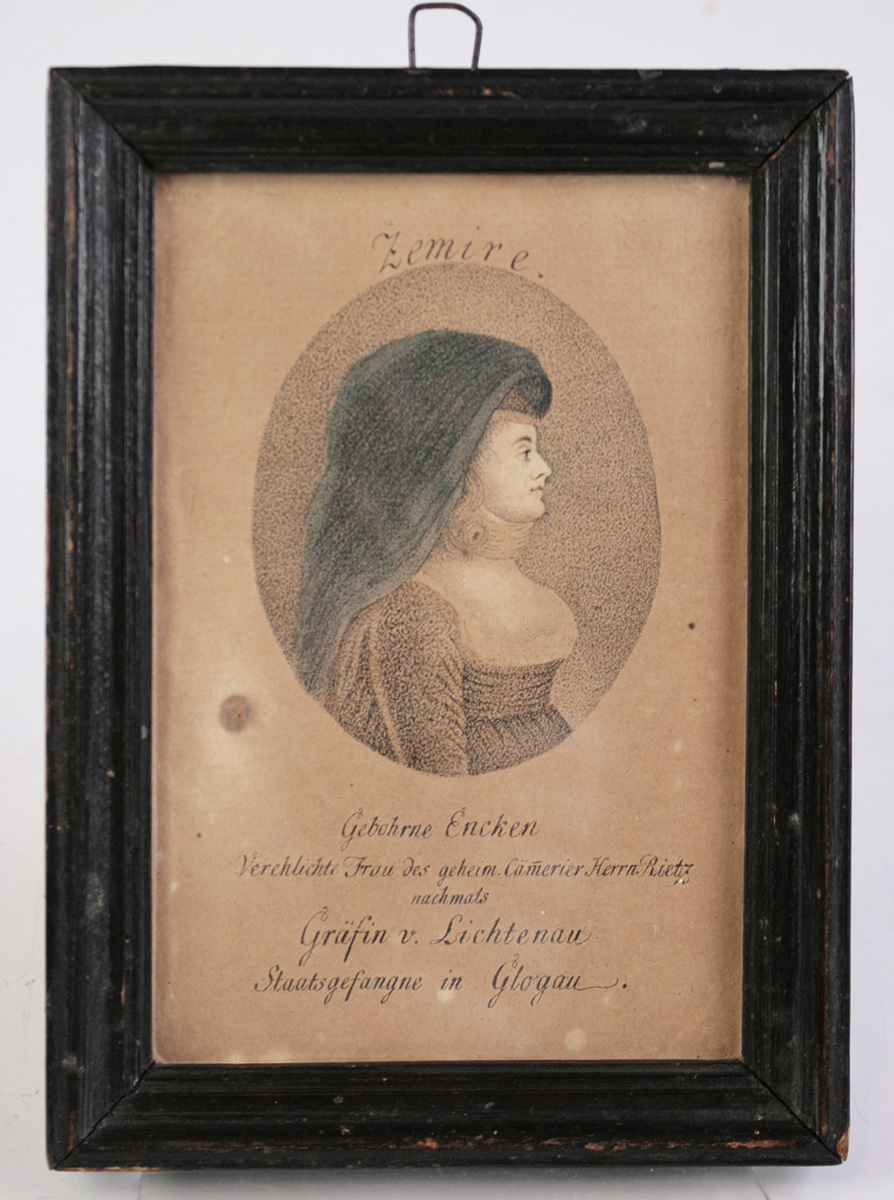 Zemire.
Gebohrne Encken
Verehlichte Frau des geheim. Cam̅erier Herrn Rietz
nachmals
Gräfin v. Lichtenau
Staatsgefangne in Glogau.